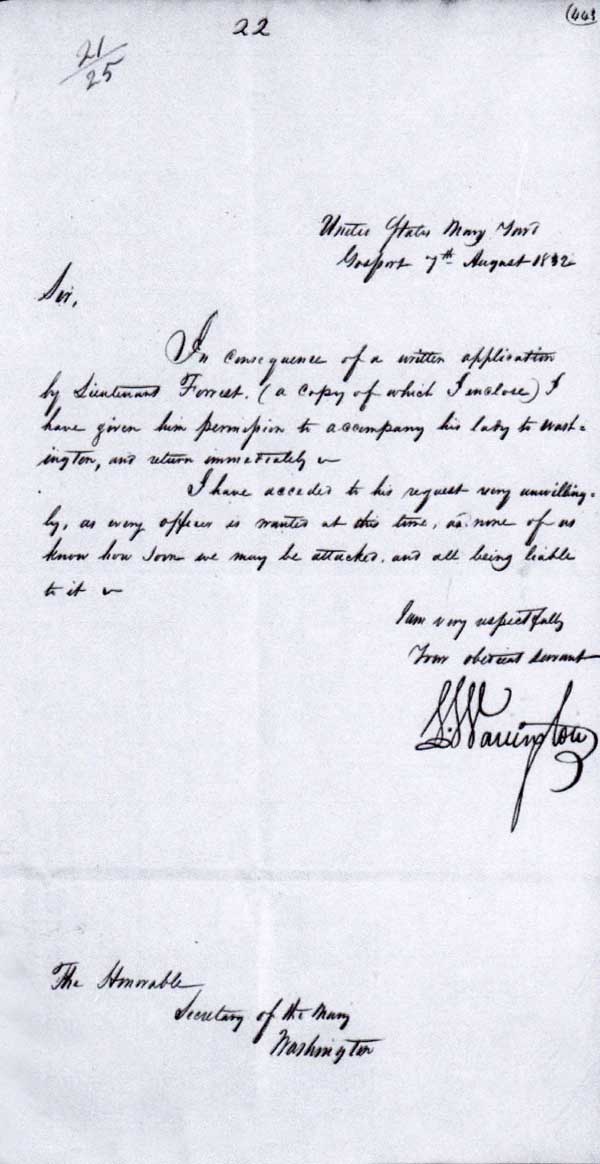 22
(443
21/25
United States Navy Yard
Gosport 7th August 1832
Sir,
In consequence of a written application
by Lieutenant Forrest. (a copy of which I enclose) I
have given him permission to accompany his lady to Wash=
ington, and return immediately
I have acceded to his request very unwilling=
ly, as every officer is wanted at this time, as none of us
know how soon we may be attacked, and all being liable
to it
I am very respectfully
Your obedient servant
L. Warrington
The Honorable
Secretary of the Navy
Washington